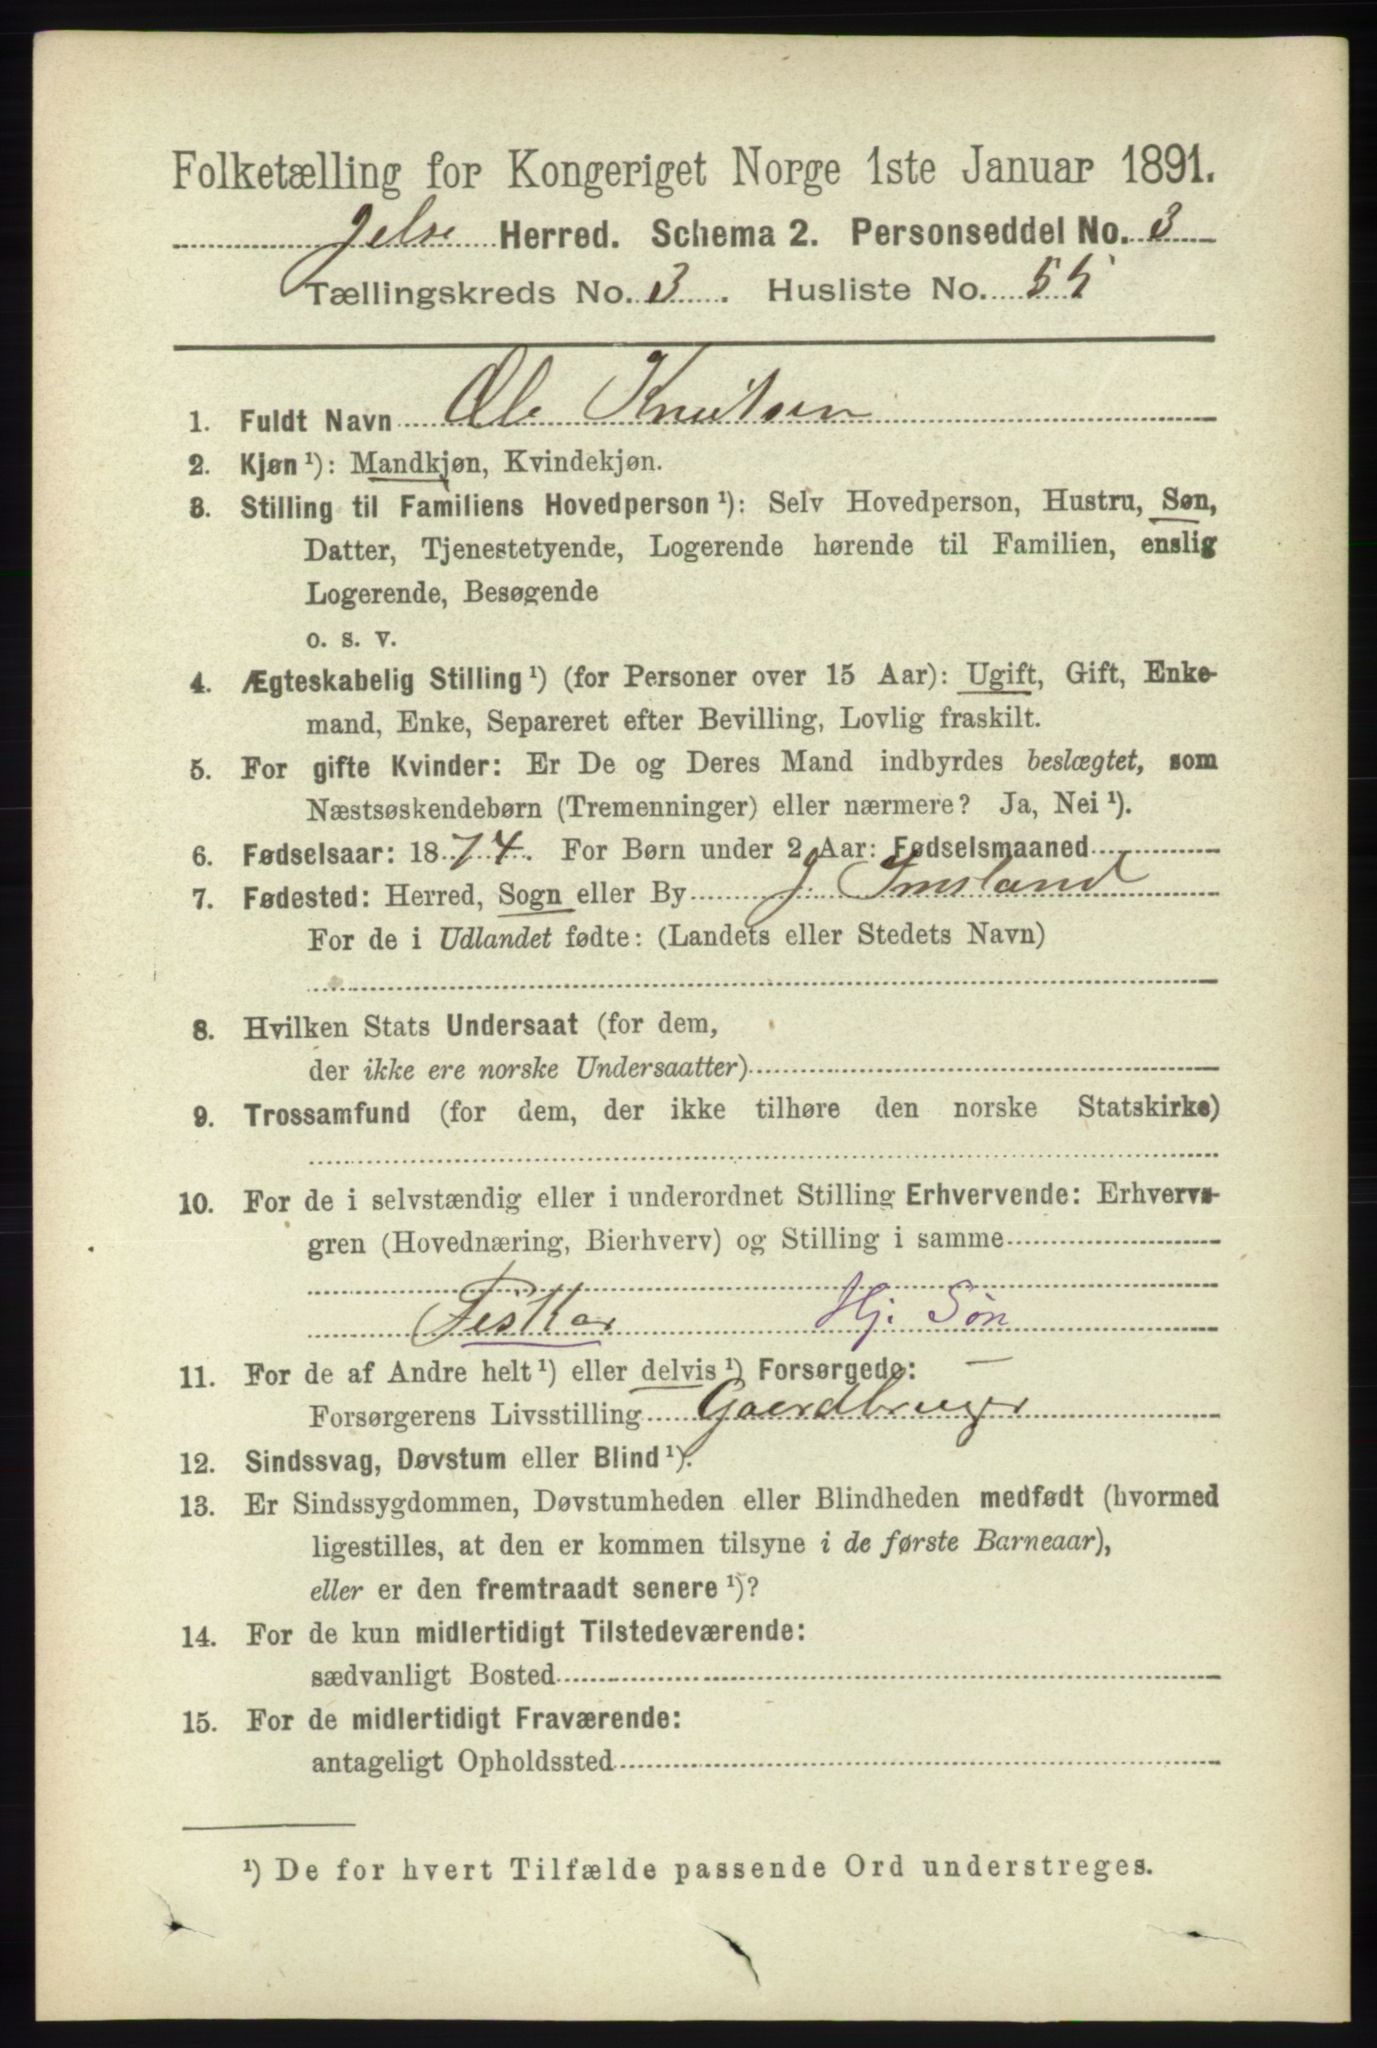 Folketælling for Kongeriget Norge 1ste Januar 1891.
Jelse Herred. Schema 2. Personseddel No. 3
Tællingskreds No. 3. Husliste No. 55
1. Fuldt Navn Ole Knutsen
2. Kjøn ¹): Mandkjøn, Kvindekjøn.
3. Stilling til Familiens Hovedperson ¹): Selv Hovedperson, Hustru, Søn,
Datter, Tjenestetyende, Logerende hørende til Familien, enslig
Logerende, Besøgende
o. s. v.
4. Ægteskabelig Stilling ¹) (for Personer over 15 Aar): Ugift, Gift, Enke-
mand, Enke, Separeret efter Bevilling, Lovlig fraskilt.
5. For gifte Kvinder: Er De og Deres Mand indbyrdes beslægtet, som
Næstsøskendebørn (Tremenninger) eller nærmere? Ja, Nei ¹).
6. Fødselsaar: 1874. For Børn under 2 Aar: Fødselsmaaned
7. Fødested: Herred, Sogn eller By J. Imsland
For de i Udlandet fødte: (Landets eller Stedets Navn)
8. Hvilken Stats Undersaat (for dem,
der ikke ere norske Undersaatter)
9. Trossamfund (for dem, der ikke tilhøre den norske Statskirke)
10. For de i selvstændig eller i underordnet Stilling Erhvervende: Erhvervs-
gren (Hovednæring, Bierhverv) og Stilling i samme
Fisker Hj. Søn
11. For de af Andre helt ¹) eller delvis ¹) Forsørgede: —
Forsørgerens Livsstilling Gaardbruger
12. Sindssvag, Døvstum eller Blind ¹).
13. Er Sindssygdommen, Døvstumheden eller Blindheden medfødt (hvormed
ligestilles, at den er kommen tilsyne i de første Barneaar),
eller er den fremtraadt senere ¹)?
14. For de kun midlertidigt Tilstedeværende:
sædvanligt Bosted
15. For de midlertidigt Fraværende:
antageligt Opholdssted
¹) De for hvert Tilfælde passende Ord understreges.